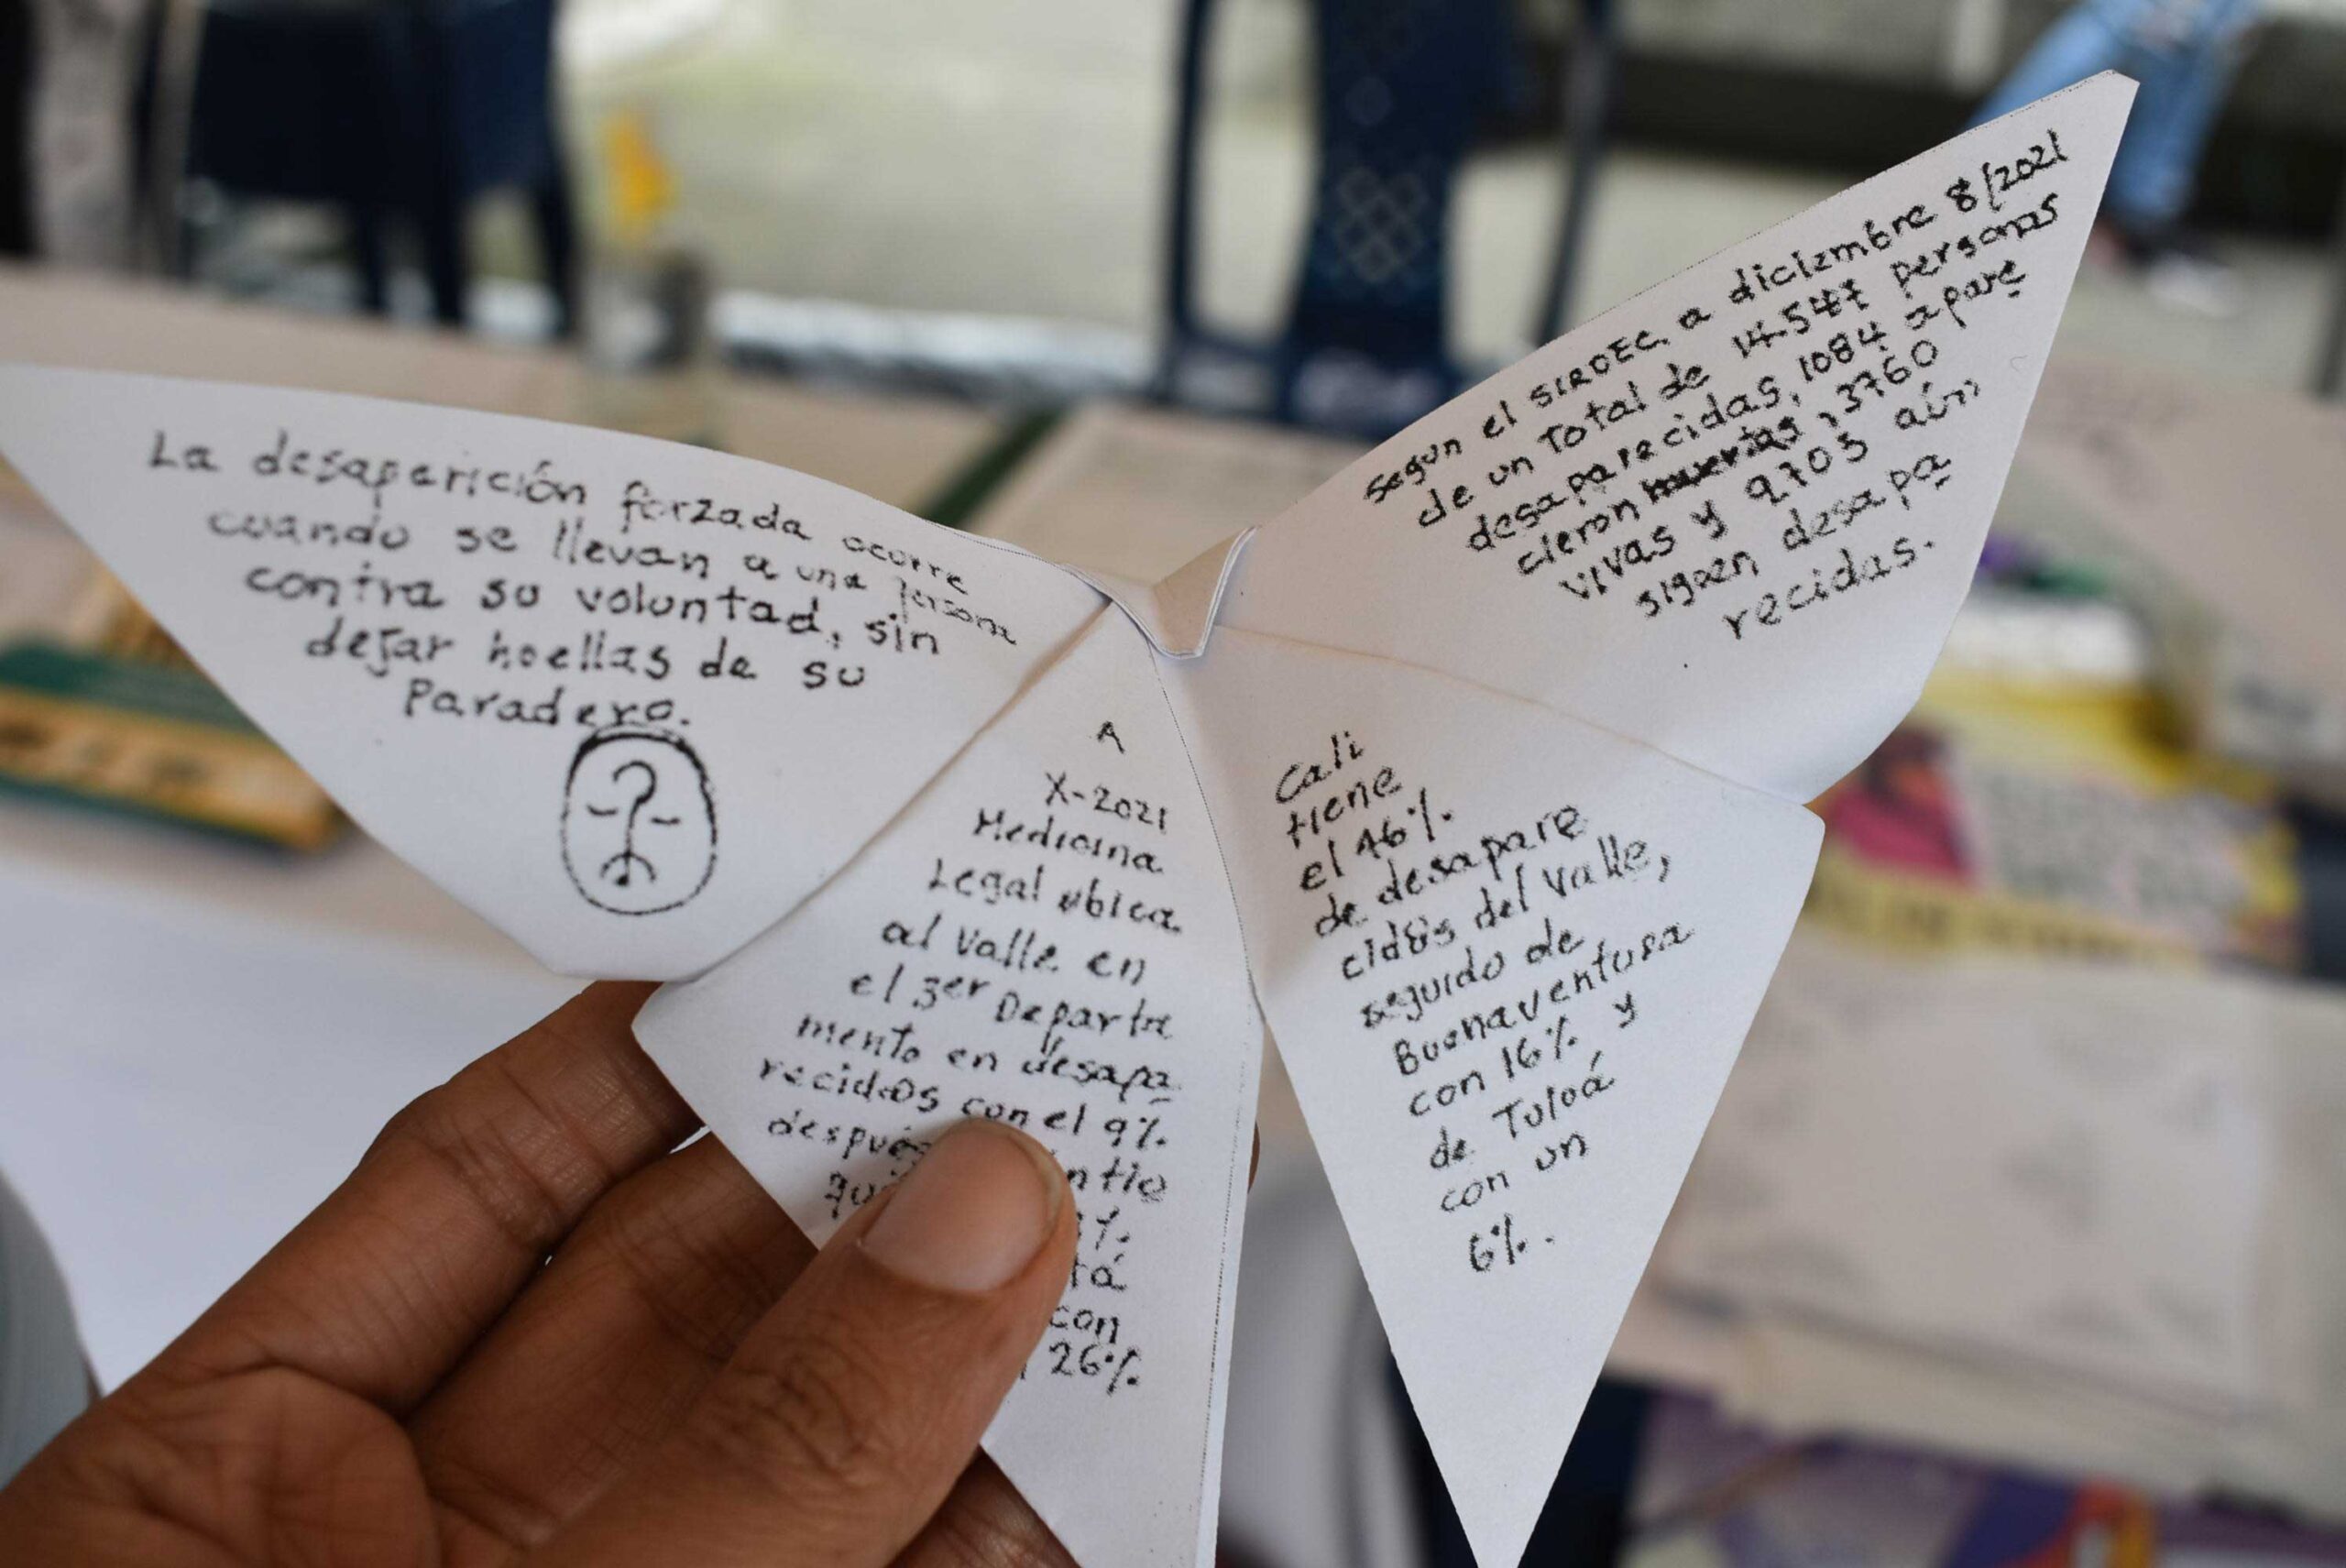 La desaperición forzada ocorre
cuando se llevan a una persona
contra su voluntad, sin
dejar hoellas de su
Paradero.
A
X-2021
Medicina
Legal ubica
al Valle en
el 3er Departa
mento en desapa
recid@s con el 9%
después
ntio
con
26%
Cali
tiene
el 46%
de desapare
cid@s del Valle,
seguido de
Buenaventura
con 16% y
de Tuloá
con un
6%.
Segun el SIRDEC, a diciembre 8/2021
de un total de 14.547 personas
desaparecidas, 1084 apare
cieron muertas, 3760
vivas y 9703 aún
siguen desapa
recidas.